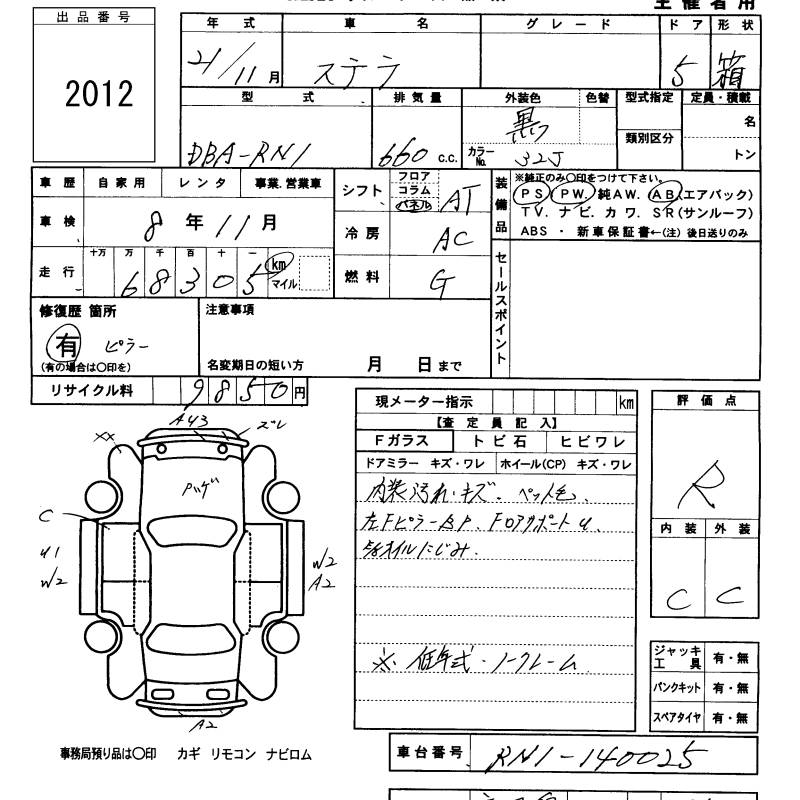 主催者用
出品番号
2012
年式 車名 グレード ドア 形状
21/11月 ステラ 5 箱
型式 排気量 外装色 色替 型式指定 定員・積載
DBA-RN1 660 c.c. 黒 カラーNo. 32J 類別区分 名
トン
車歴 自家用 レンタ 事業.営業車
車検 8年11月
走行 十万 万 千 百 十 一
68305 km マイル
シフト フロア コラム パネル AT
冷房 AC
燃料 G
装備品 ※純正のみ○印をつけて下さい。
PS PW. 純AW. AB(エアバック)
TV. ナビ. カワ. SR(サンルーフ)
ABS ・ 新車保証書←(注) 後日送りのみ
セールスポイント
修復歴 箇所
有 ピラー
(有の場合は○印を)
注意事項
名変期日の短い方 月 日まで
リサイクル料 9850円
現メーター指示 km
【査定員記入】
Fガラス トビ石 ヒビワレ
ドアミラー キズ・ワレ ホイール(CP) キズ・ワレ
内装汚れ・キズ、ペット毛、
左FピラーBP、
オイルにじみ.
※ 低年式・ノークレーム
評価点
R
内装 外装
C C
A43 ズレ
XX
ハゲ
C
U1
W2
W2
A2
A2
ジャッキ 工具 有・無
パンクキット 有・無
スペアタイヤ 有・無
事務局預り品は○印 カギ リモコン ナビロム
車台番号 RN1-140025